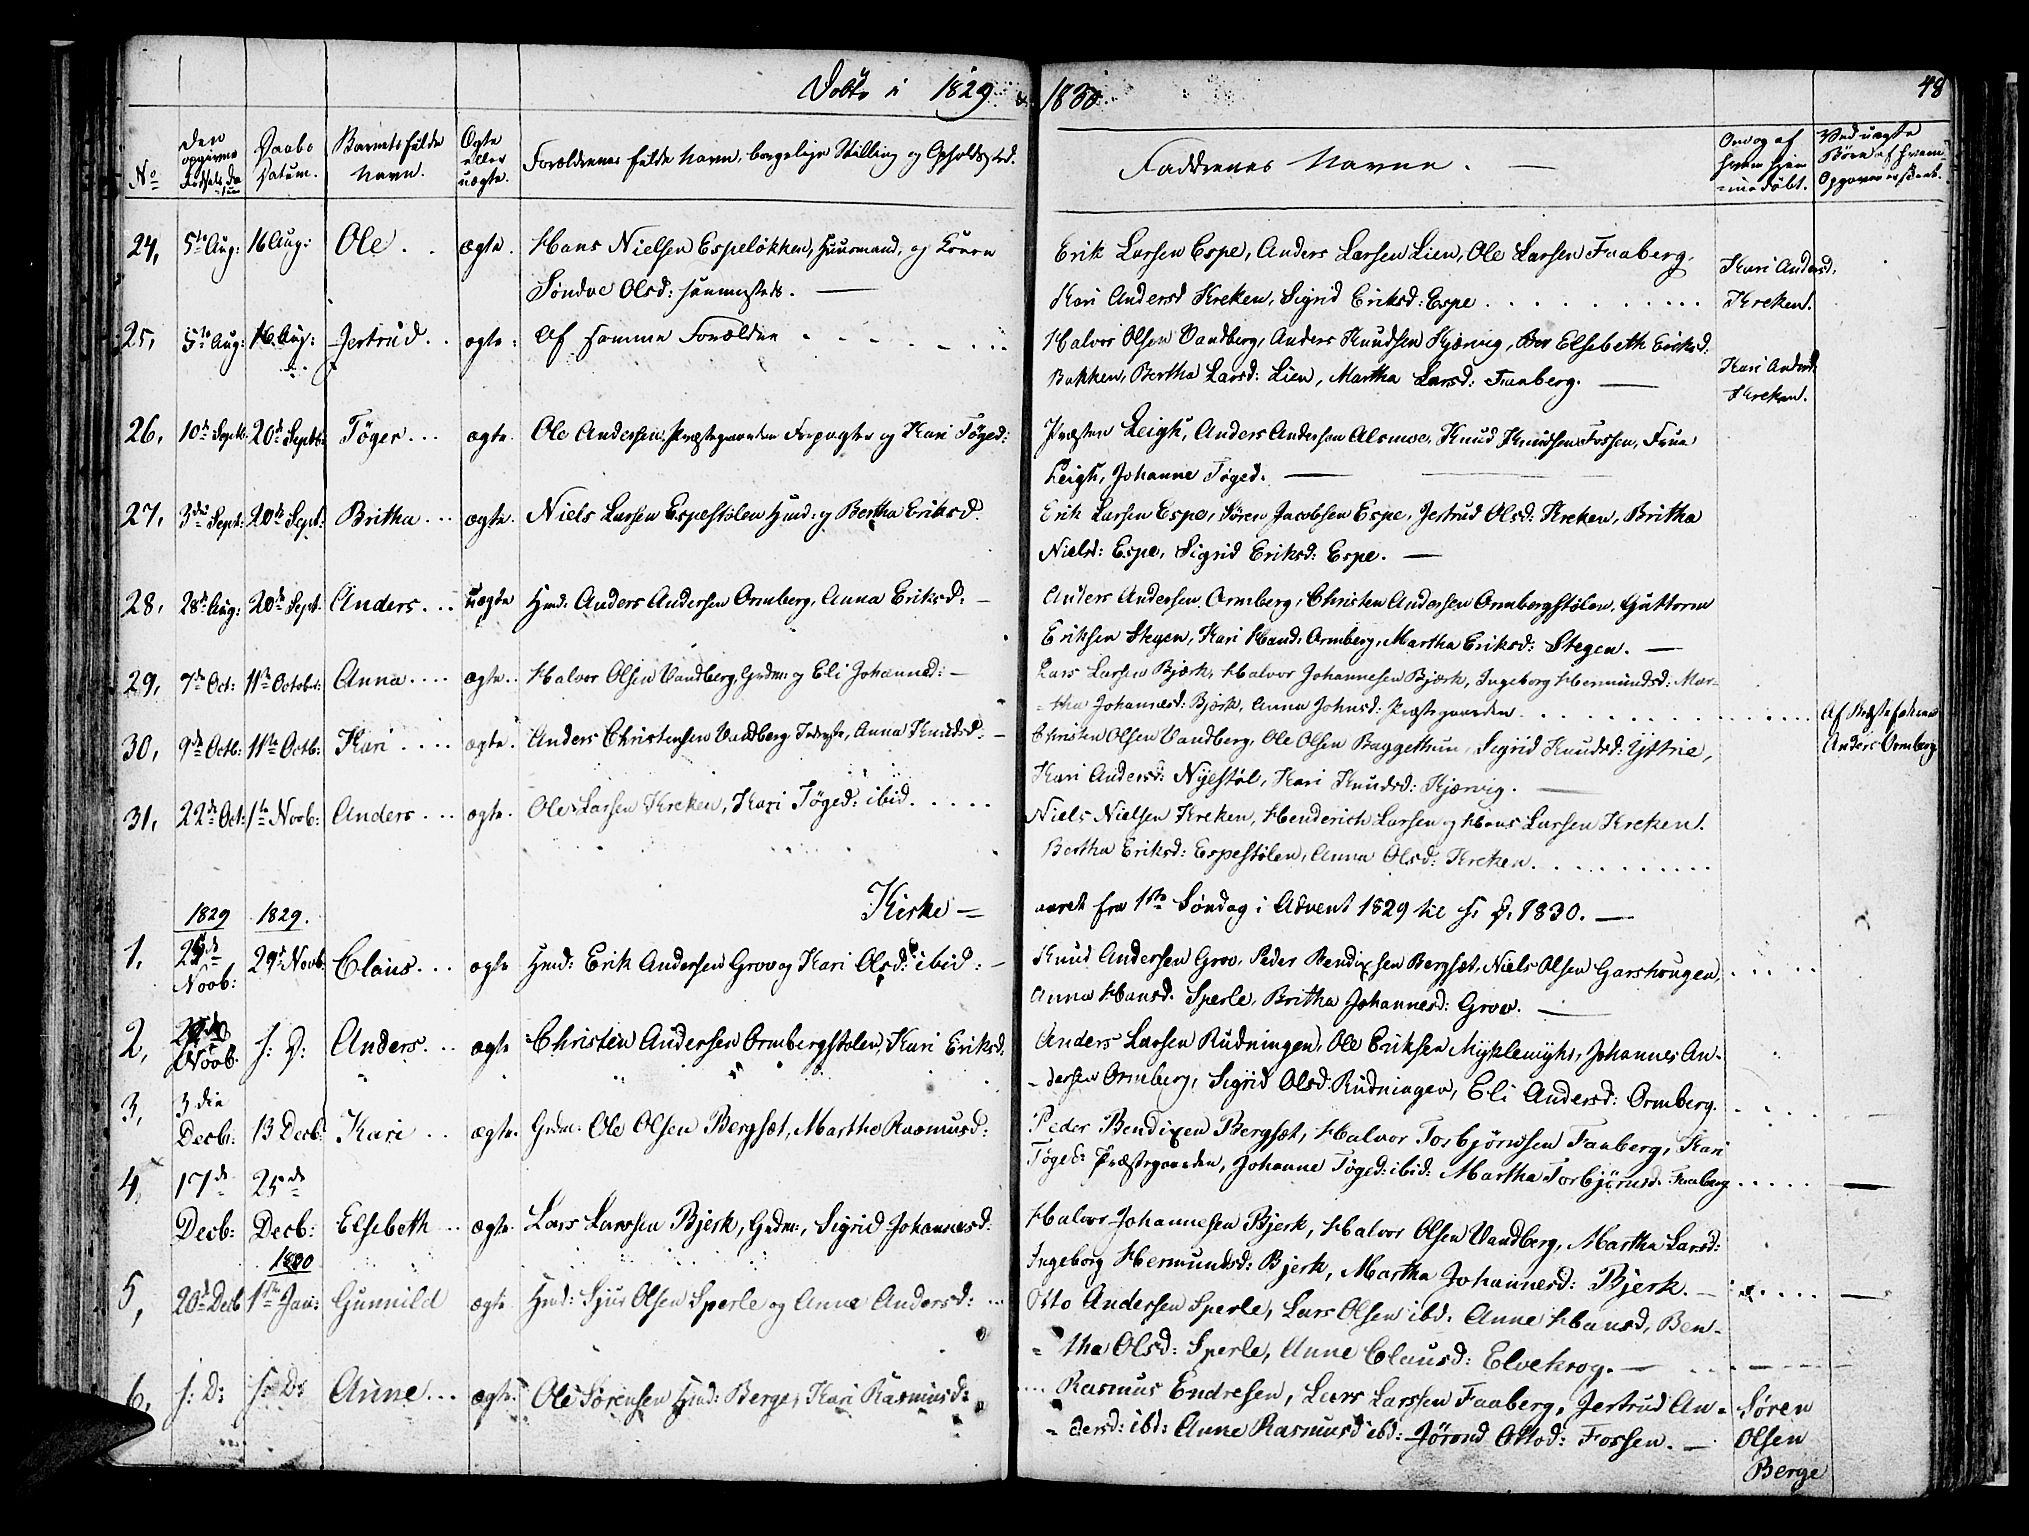 Døbte i 1829 & 1830.
48
No
Den opgivne Fødsels Datum
Daabs Datum.
Barnets fulde Navn.
Ægte eller uægte.
Forældrenes fulde Navn, borgelige Stilling og Opholdsted.
Faddernes Navne. —
Om og af hvem hjemmedøbt.
Ved uægte Børn af hvem Opgaven er skeet.
24, 5te Aug: 16 Aug: Ole . . ægte. Hans Nielsen Espeløkken, Huusmand, og Konen
Søndve Olsd: sammesteds. —
Erik Larsen Espe, Anders Larsen Lien, Ole Larsen Faaberg,
Kari Andersd Kreken, Sigrid Eriksd: Espe . . . .
Kari Andersd,
Kreken.
25, 5te Aug: 16 Aug: Jertrud . . ægte. Af samme Forældre
Halvor Olsen Vandberg, Anders Knudsen Kjærvig, Elsebeth Eriksd:
Bakken, Bertha Larsd: Lien, Martha Larsd: Faaberg. —
Kari Andersd
Kreken.
26, 10de Septb: 20de Septb: Tøger . . . ægte. Ole Andersen, Præstegaardens Forpagter og Kari Tøged:
Præsten Leigh, Anders Andersen Alsmoe, Knud Knudsen Fossen, Frue
Leigh, Johanne Tøged. —
27, 3die Sept: 20de Sept: Britha . . . ægte. Niels Larsen Espestølen Hmd: og Bertha Eriksd.
Erik Larsen Espe, Søren Jacobsen Espe, Jertrud Olsd: Kreken, Britha
Nielsd: Espe, Sigrid Eriksd: Espe. —
28, 28de Aug: 20de Sept. Anders . . . uægte Hmd: Anders Andersen Ormberg, Anna Eriksd: —
Anders Andersen Ormberg, Christen Andersen Ormbergstølen, Guttorm
Eriksen Stegen, Kari Hansd: Ormberg, Martha Eriksd: Stegen. —
29, 7de Oct: 11te October: Anna . . . . ægte. Halvor Olsen Vandberg, Grdm: og Eli Johannesd: —
Lars Larsen Bjerk, Halvor Johannesen Bjærk, Ingeborg Hermundsd: Mar-
tha Johannesd: Bjærk, Anna Johnsd: Præstegaarden . . . .
Af Anders Ormberg
30, 9de Octb: 11te Octb: Kari . . . . ægte. Anders Christensen Vandberg, Anna Knudsd: —
Christen Olsen Vandberg, Ole Olsen Baggethun, Sigrid Knudsd: Ystrie,
Kari Andersd: Nylstøl, Kari Knudsd: Kjærvig. —
31, 22de Oct: 1te Novb: Anders . . . ægte. Ole Larsen Kreken, Kari Tøged: ibid . . . .
Niels Nielsen Kreken, Henderich Larsen og Hans Larsen Kreken.
Bertha Eriksd: Espestølen, Anna Olsd: Kreken . . . .
Kirke-
aaret fra 1ste Søndag i Advent 1829 til s. D. 1830. —
1829 1829.
1, Novb: 29de Novb: Claus . . . ægte Hmd: Erik Andersen Grov og Kari Olsd: ibid: —
Knud Andersen Grov, Peder Bendixsen Bergset, Niels Olsen Garshougen,
Anna Hansd. Sperle, Britha Johannesd: Grov. —
2, Novb. s: D: Anders . . . ægte Christen Andersen Ormbergstølen, Kari Eriksd.
Anders Larsen Rudningen, Ole Eriksen Myklemyhr, Johannes An-
dersen Ormberg, Sigrid Olsd: Rudningen, Eli Andersd: Ormberg.
3, 3die Decb: 13 Decb: Kari . . ægte. Grdm: Ole Olsen Bergset, Marthe Rasmusd:
Peder Bendixen Bergset, Halvor Torbjørnsen Faaberg, Kari
Tøged: Præstegaarden, Johanne Tøged: ibid: Martha Torbjørnsd. Faaberg
4, 17de Decb: 25de Decb: Elsebeth . . ægte. Lars Larsen Bjerk, Grdm:, Sigrid Johannesd:
Halvor Johannesen Bjerk, Halvor Olsen Vandberg, Martha Larsd:
Ingeborg Hermundsd: Bjerk, Martha Johannesd: Bjerk. —
1830
5, 20de Decb 1ste Jan: Gunnild ægte Hmd: Sjur Olsen Sperle og Anne Andersd: . . .
Otto Andersen Sperle, Lars Olsen ibd. Anne Hansd, Ben-
tha Olsd: Sperle, Anne Clausd: Elvekrog. —
6, s: D: s: D: Anne . . . ægte. Ole Sørensen Hmd: Berge, Kari Rasmusd:
Rasmus Endresen, Lars Larsen Faaberg, Jertrud An-
dersd: ibd: Anne Rasmusd ibd: Jørond Ottod: Fossen. —
Søren
Olsen
Berge